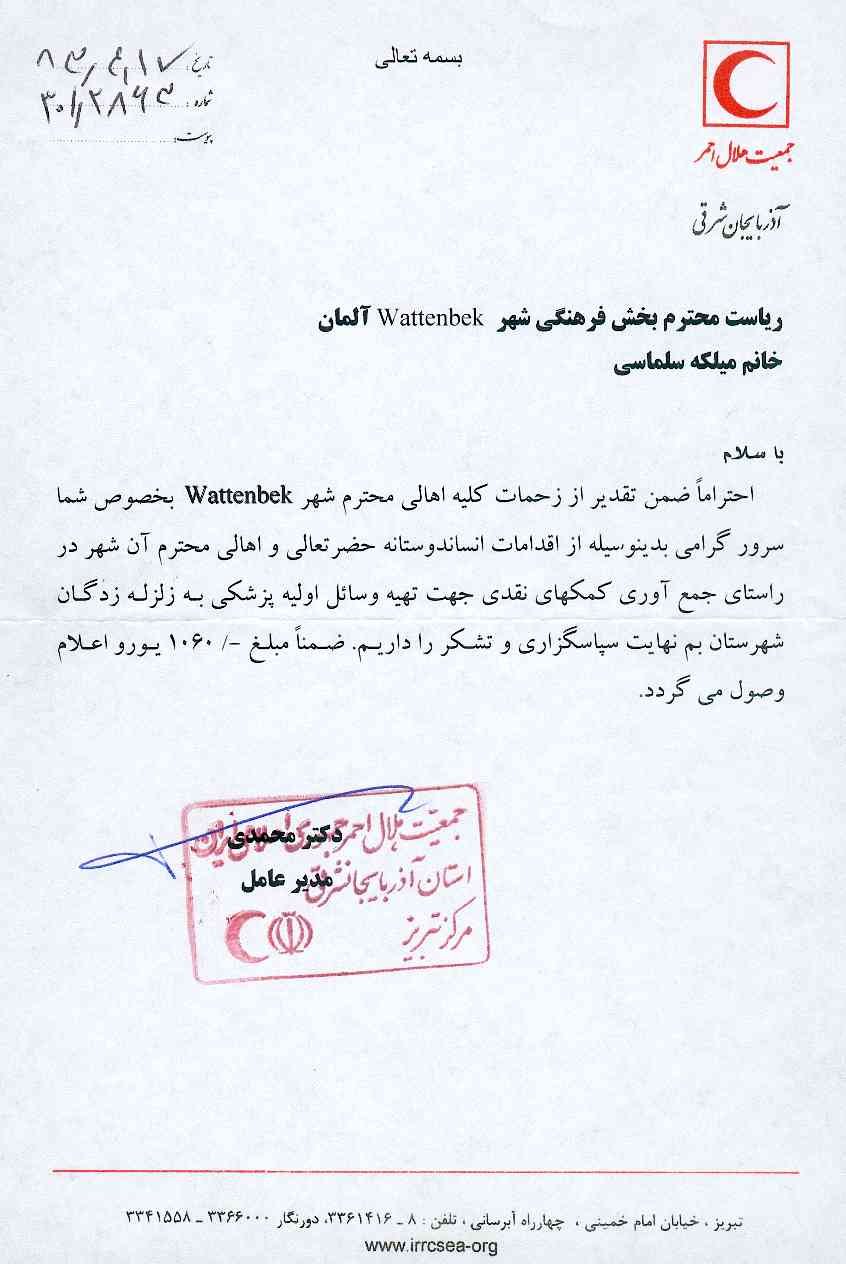 بسمه تعالی
جمعیت هلال احمر
آذربایجان شرقی
تاریخ:
شماره: ۳۰۱/۲۸۶۳
پیوست:
ریاست محترم بخش فرهنگی شهر Wattenbek آلمان
خانم میلکه سلماسی
با سلام
احتراماً ضمن تقدیر از زحمات کلیه اهالی محترم شهر Wattenbek بخصوص شما
سرور گرامی بدینوسیله از اقدامات انساندوستانه حضرتعالی و اهالی محترم آن شهر در
راستای جمع آوری کمکهای نقدی جهت تهیه وسائل اولیه پزشکی به زلزله زدگان
شهرستان بم نهایت سپاسگزاری و تشکر را داریم. ضمناً مبلغ -/ ۱۰۶۰ یورو اعلام
وصول می گردد.
دکتر محمدی
مدیر عامل
جمعیت هلال احمر جمهوری اسلامی ایران
استان آذربایجانشرقی
مرکز تبریز
تبریز ، خیابان امام خمینی ، چهارراه آبرسانی ، تلفن : ۸ ـ ۳۳۶۱۴۱۶، دورنگار ۳۳۶۶۰۰۰ ـ ۳۳۴۱۵۵۸
www.irrcsea-org